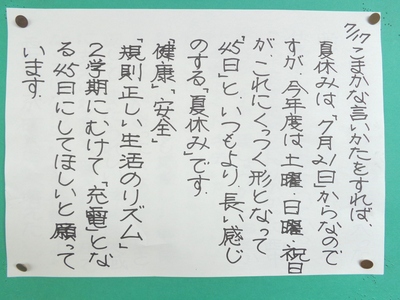 7/17 こまかな言いかたをすれば、
夏休みは「7月21日」からなので
すが、今年度は土曜・日曜・祝日
が、これにくっつく形となって
「45日」と、いつもより、長い感じ
のする「夏休み」です.
「健康」「安全」
「規則正しい生活のリズム」
2学期にむけて「充電」とな
る45日にしてほしいと願って
います.